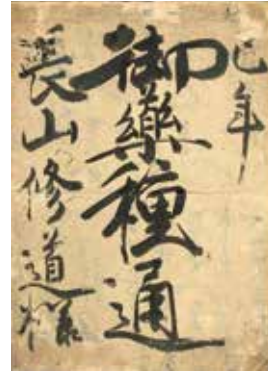 巳年
御藥種通
長山修道様